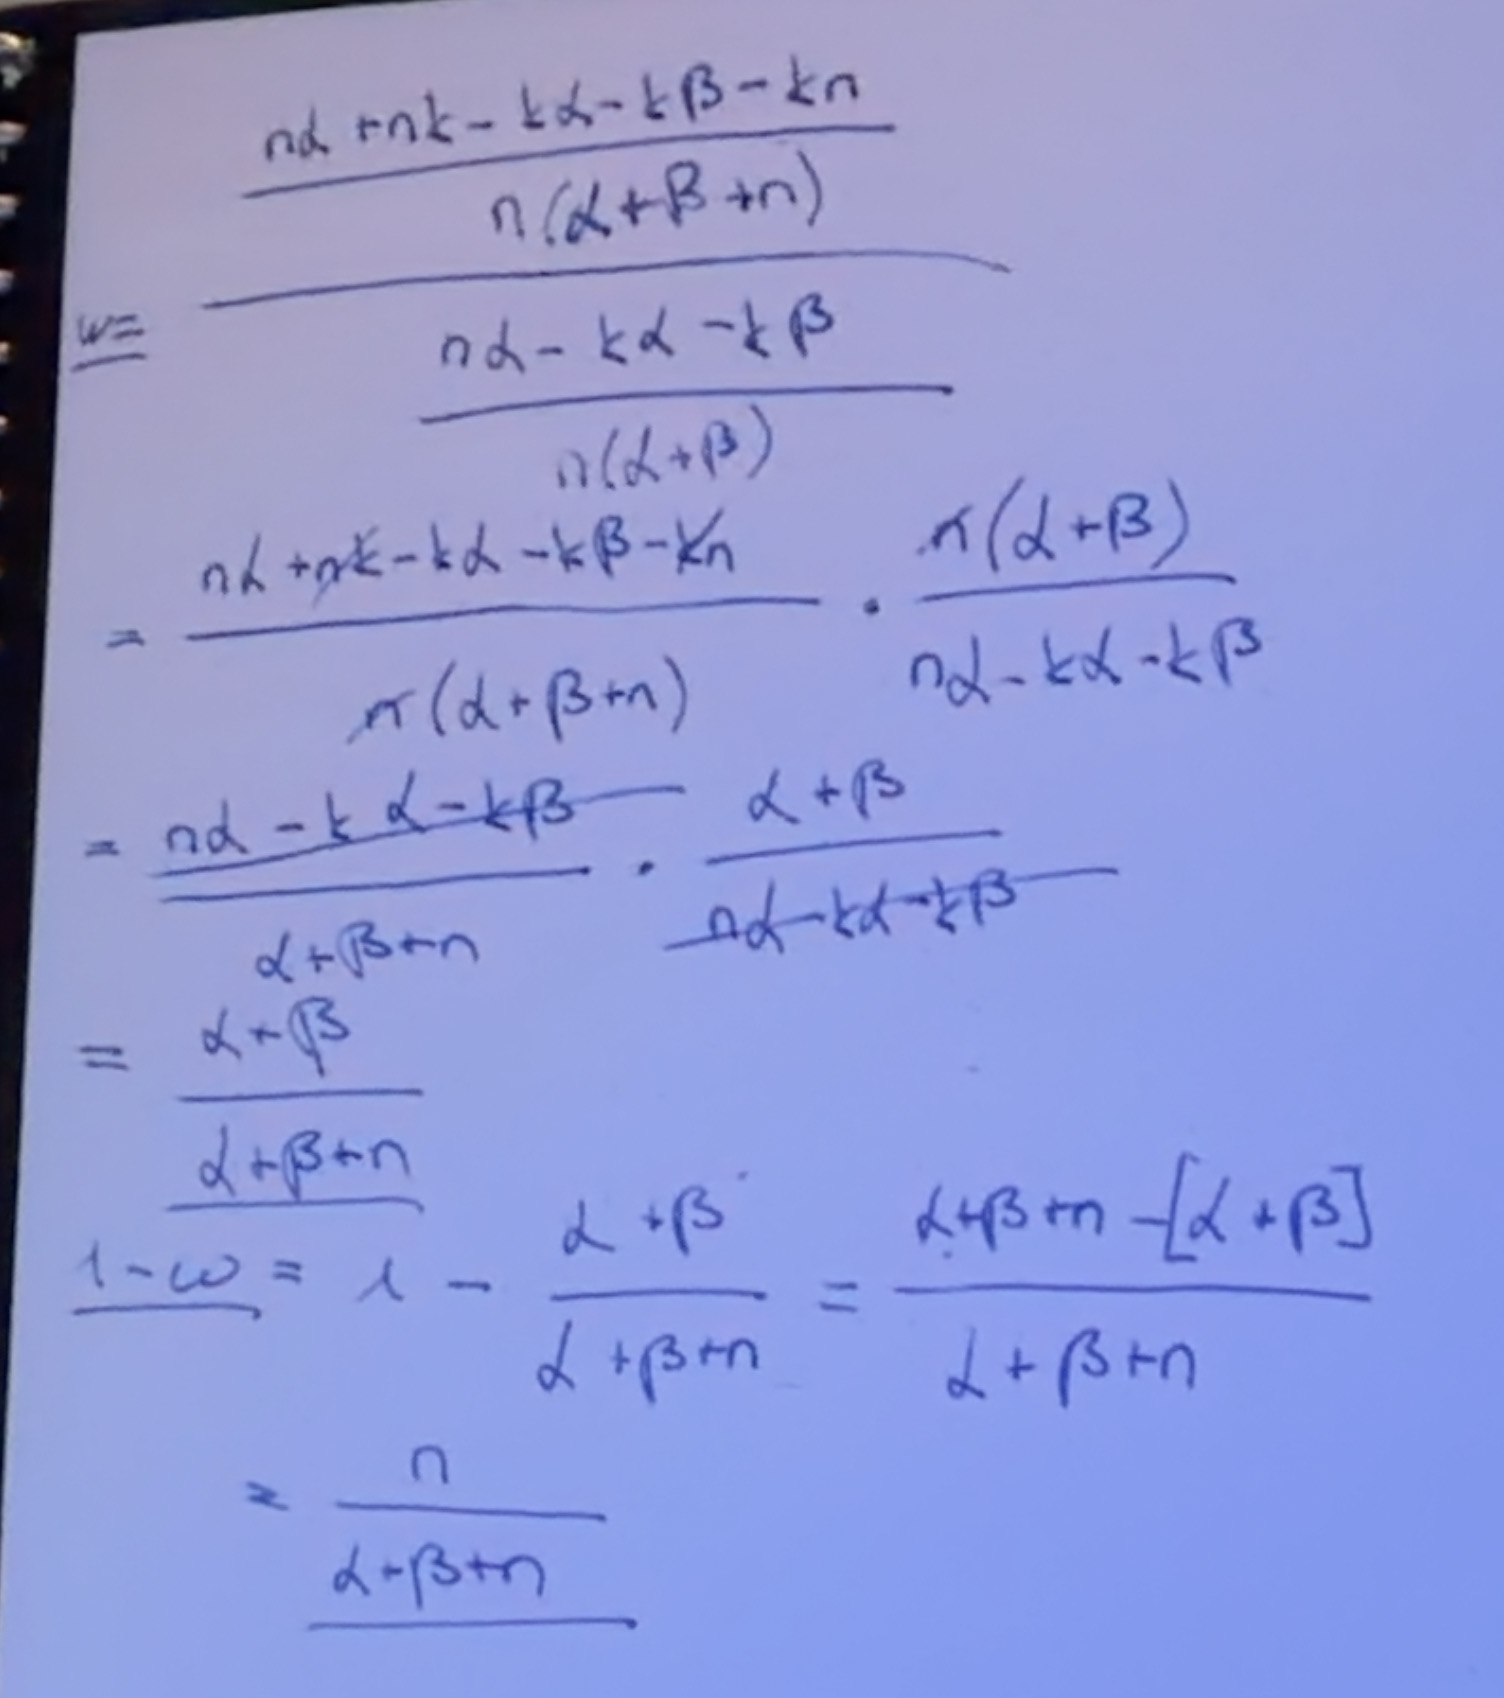 nα + nk - kα - kβ - kn
n(α + β + n)
w =
nα - kα - kβ
n(α + β)
= nα + nk - kα - kβ - kn / n(α + β + n) · n(α + β) / nα - kα - kβ
= nα - kα - kβ / α + β + n · α + β / nα - kα - kβ
= α + β / α + β + n
1 - w = 1 - α + β / α + β + n = α + β + n - [α + β] / α + β + n
= n / α + β + n